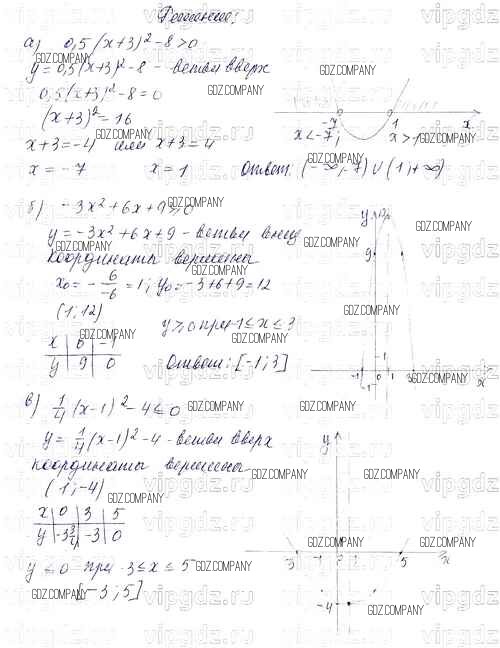 Решение:
а) 0,5(x+3)² - 8 > 0
y = 0,5(x+3)² - 8 - ветви вверх
0,5(x+3)² - 8 = 0
(x+3)² = 16
x+3 = -4 или x+3 = 4
x = -7 x = 1
-7 1 x
x < -7; x > 1
Ответ: (-∞; -7) ∪ (1; +∞)
б) -3x² + 6x + 9 ≥ 0
y = -3x² + 6x + 9 - ветви вниз
координаты вершины
x₀ = - 6/-6 = 1; y₀ = -3+6+9 = 12
(1; 12)
x | 0 | -1
y | 9 | 0
y ≥ 0 при -1 ≤ x ≤ 3
Ответ: [-1; 3]
y
9
1
-1 0 1 3 x
-1
в) 1/4 (x-1)² - 4 ≤ 0
y = 1/4 (x-1)² - 4 - ветви вверх
координаты вершины
(1; -4)
x | 0 | 3 | 5
y | -3 3/4 | -3 | 0
y ≤ 0 при -3 ≤ x ≤ 5
[-3; 5]
y
-3 -1 1 5 x
-4
GDZ.COMPANY
vipgdz.ru